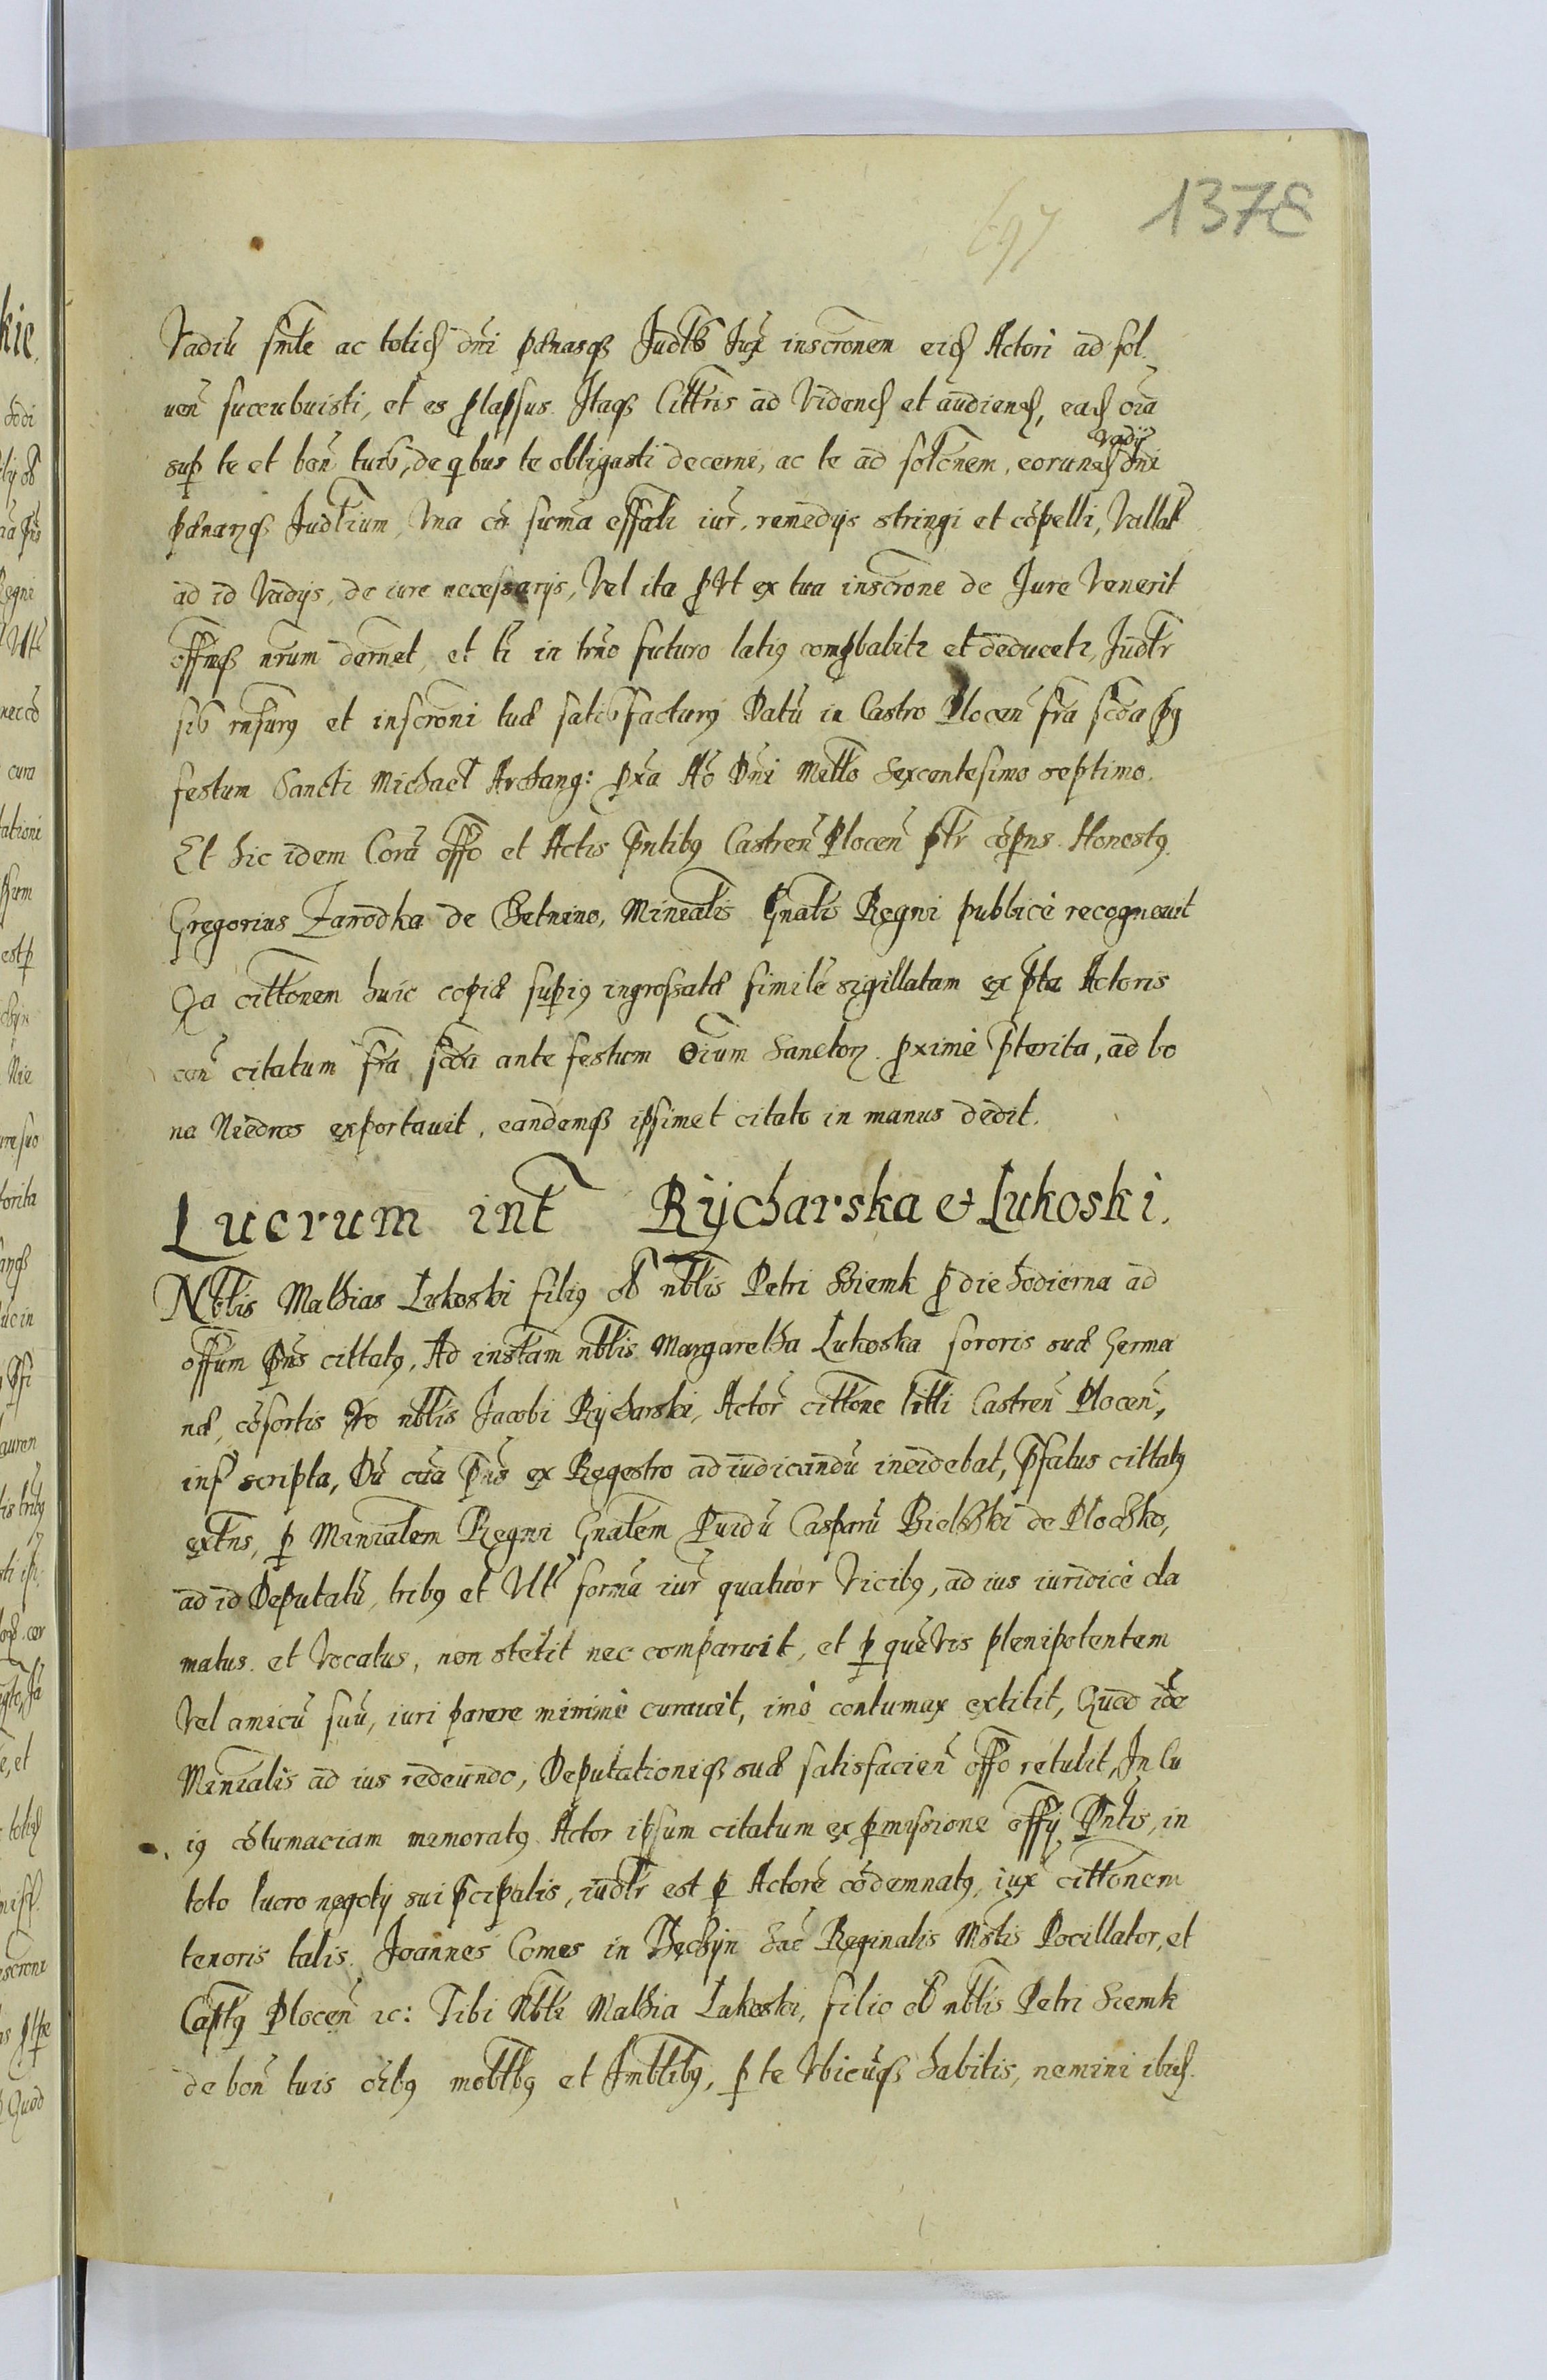 1378
697
Vadiu smle ac totid dni pænasq Judtb Jux inscronem eid Actori ad sol
uen succubuisti, et es plapsus. Itaq Cittris ad Vidend et audiend, ead oia
sup te et bon tuis, de qbus te obligasti decerni, ac te ad soltonem, eorund vadij dni
pænarq Judtium, Vna cu suma effali iur. remedijs stringi et copelli, Vallat
ad id Vadijs, de iure necessarijs, Vel ita put ex tua inscrone de Jure Venerit
offmq nrum dernet, et ti in trno futuro latig compbabitr et deducetr, Judtr
sis rnsurg et inscroni tuæ satisfacturg Datu in Castro Plocen fra scda pg
festum Sancti Michael Archang: pxa Ao Dni Mitto Sexcentesimo septimo.
Et hic idem Cora offo et Actis Pntibg Castren Plocen ptr copns. Honestg
Gregorius Zarodka de Setnino, Minialis Gnalis Regni publicè recognouit
Qa cittonem huic copiæ supig ingrossatæ simile sigillatam ex pte Actoris
con citatum fra scda ante festum Oium Sanctorz pximè pterita, ad bo
na Niedros exportauit, eandemq ipsimet citato in manus dedit.
Lucrum int Rÿcharska et Lukoski.
Nblis Mathias Lukoski filig ol nblis Petri Siemk p die hodierna ad
offum Pns cittatg, Ad instam nblis Margaretha Lukoska sororis suæ Germa
næ, cosortis Vo nblis Jacobi Rÿcharski, Actor cittone litti Castren Plocen,
inf scripta, Du cua Pns ex Regestro ad iudicandu incidebat, Pfatus cittatg
extns, p Minialem Regni Gnalem Puidu Casparu Bielski de Plochko,
ad id Deputatu, tribg et Vlt forma iur quatuor Vicibg, ad ius iuridicè cla
matus et Vocatus, non stetit nec comparuit, et p queuis plenipotentem
Vel amicu suu, iuri parere minimè curauit, imò contumax extitit, Quod ide
Minialis ad ius redeundo, Deputationiq suæ satisfacien offo retulit, In Cu
ig cotumaciam memoratg Actor ipsum citatum ex pmissione offij Pntis, in
toto lucro negotij sui pcipalis, iudtr est p Actore codemnatg, iux cittonem
tenoris talis. Joannes Comes in Techÿn Sac Reginalis Mstis Pocillator, et
Captg Plocen rc: Tibi Nbli Mathia Lukoski, filio ol nblis Petri Siemk
de bon tuis oibg mobtbg et Imbtibg, p te Vbicuq habitis, nemini ibid.